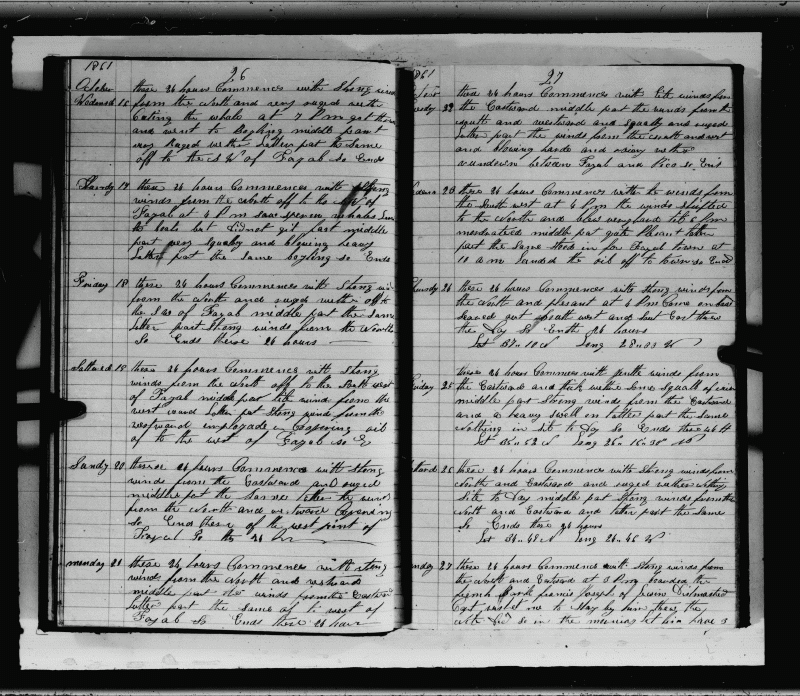 1861
26
October these 24 hours Commences with Strong winds
Wedensd 16 from the North and very ruged weth
Cuting the whale at 7 P m got the
and went to Boyling middle part
very Ruged wether Latter part the Same
off to the S W of Fayal So Ends
Thursdy 17 these 24 hours Commences with Strong
winds from the North off to the S W of
Fayal at 4 P m Saw sperm whales
the boats but didnot git fast middle
part very squaly and blowing heavy
Latter part the Same boyling so Ends
Friday 18 these 24 hours Commences with Strong wi
from the North and ruged weth off to
the S W of Fayal middle part the Same
latter part Strong winds from the North
So Ends these 24 hours
Satterd 19 these 24 hours Commences with Strong
winds from the North off to the South west
of Fayal middle part the winds from the
west ward Latter part Strong winds from the
westward employed in Coopering oil
of to the west of Fayal so E
Sundy 20 these 24 hours Commences with Strong
winds from the Eastward and ruged
middle part the Same latter the winds
from the North and
So Ends these of the west point of
Fayal So the 24 h
Munday 21 these 24 hours Commences with Strong
winds from the North and
middle part the winds from the Easter
Latter part the Same of the west of
Fayal So Ends these 24 hours
1861
27
these 24 hours Commences with winds from
22 the Eastward middle part the winds from the
South and westward and squaly and ruged
Latter part the winds from the South and west
and blowing harde and rainy wether
between Fayal and Pico so Ends
23 these 24 hours Commences with the winds from
the South west at 4 P m the winds Shifted
to the North and blew very hard till 6 P m
moderated middle part quite Plesant latter
part the Same Stood in for Fayal town at
10 a m Landed the oil off to town so Ends
Thursdy 24 these 24 hours Commences with Strong winds from
the North and plesant at 4 P m Came on bord
South west and
the Day So Ends 24 hours
Lat 37 " 10 N Long 28 " 03 W
these 24 hours Commences with winds from
Friday 25 the Eastward and thick wether Some Squalls of rain
middle part Strong winds from the Eastward
and a heavy swell on latter part the Same
Nothing in Site to Day So Ends these 24 H
Lat 35 " 52 N Long 26 " 30" W
26 these 24 hours Commences with Strong winds from
North and Eastward and ruged wether nothing
Site to Day middle part Strong winds from the
North and Eastward and latter part the Same
So Ends these 24 hours
Lat 34 " 48 N Long 26 " 46 W
27 these 24 hours Commences with Strong winds from
the North and Eastward at 3 P m boarded the
Bark Francis Joseph of Dismasted
Capt me to Stay by him
so in the